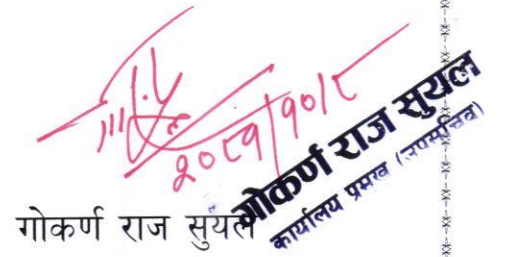 २०८१/१०/८
गोकर्ण राज सुयल
गोकर्ण राज सुयल
कार्यालय प्रमुख (उपसचिव)